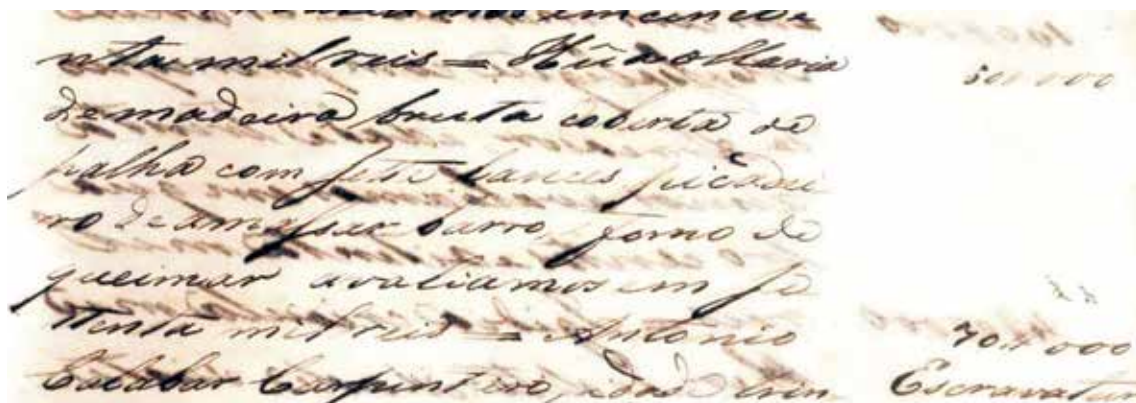 emcincoe
ntamilreis = Hũa ollaria 50$000
de madeira bruta coberta de
palha com sete lances picadei
ro de amassar barro, forno de
queimar avaliamos em se
ttenta mil reis = Antonio 70$000
Escravatur
Carpintero, idade